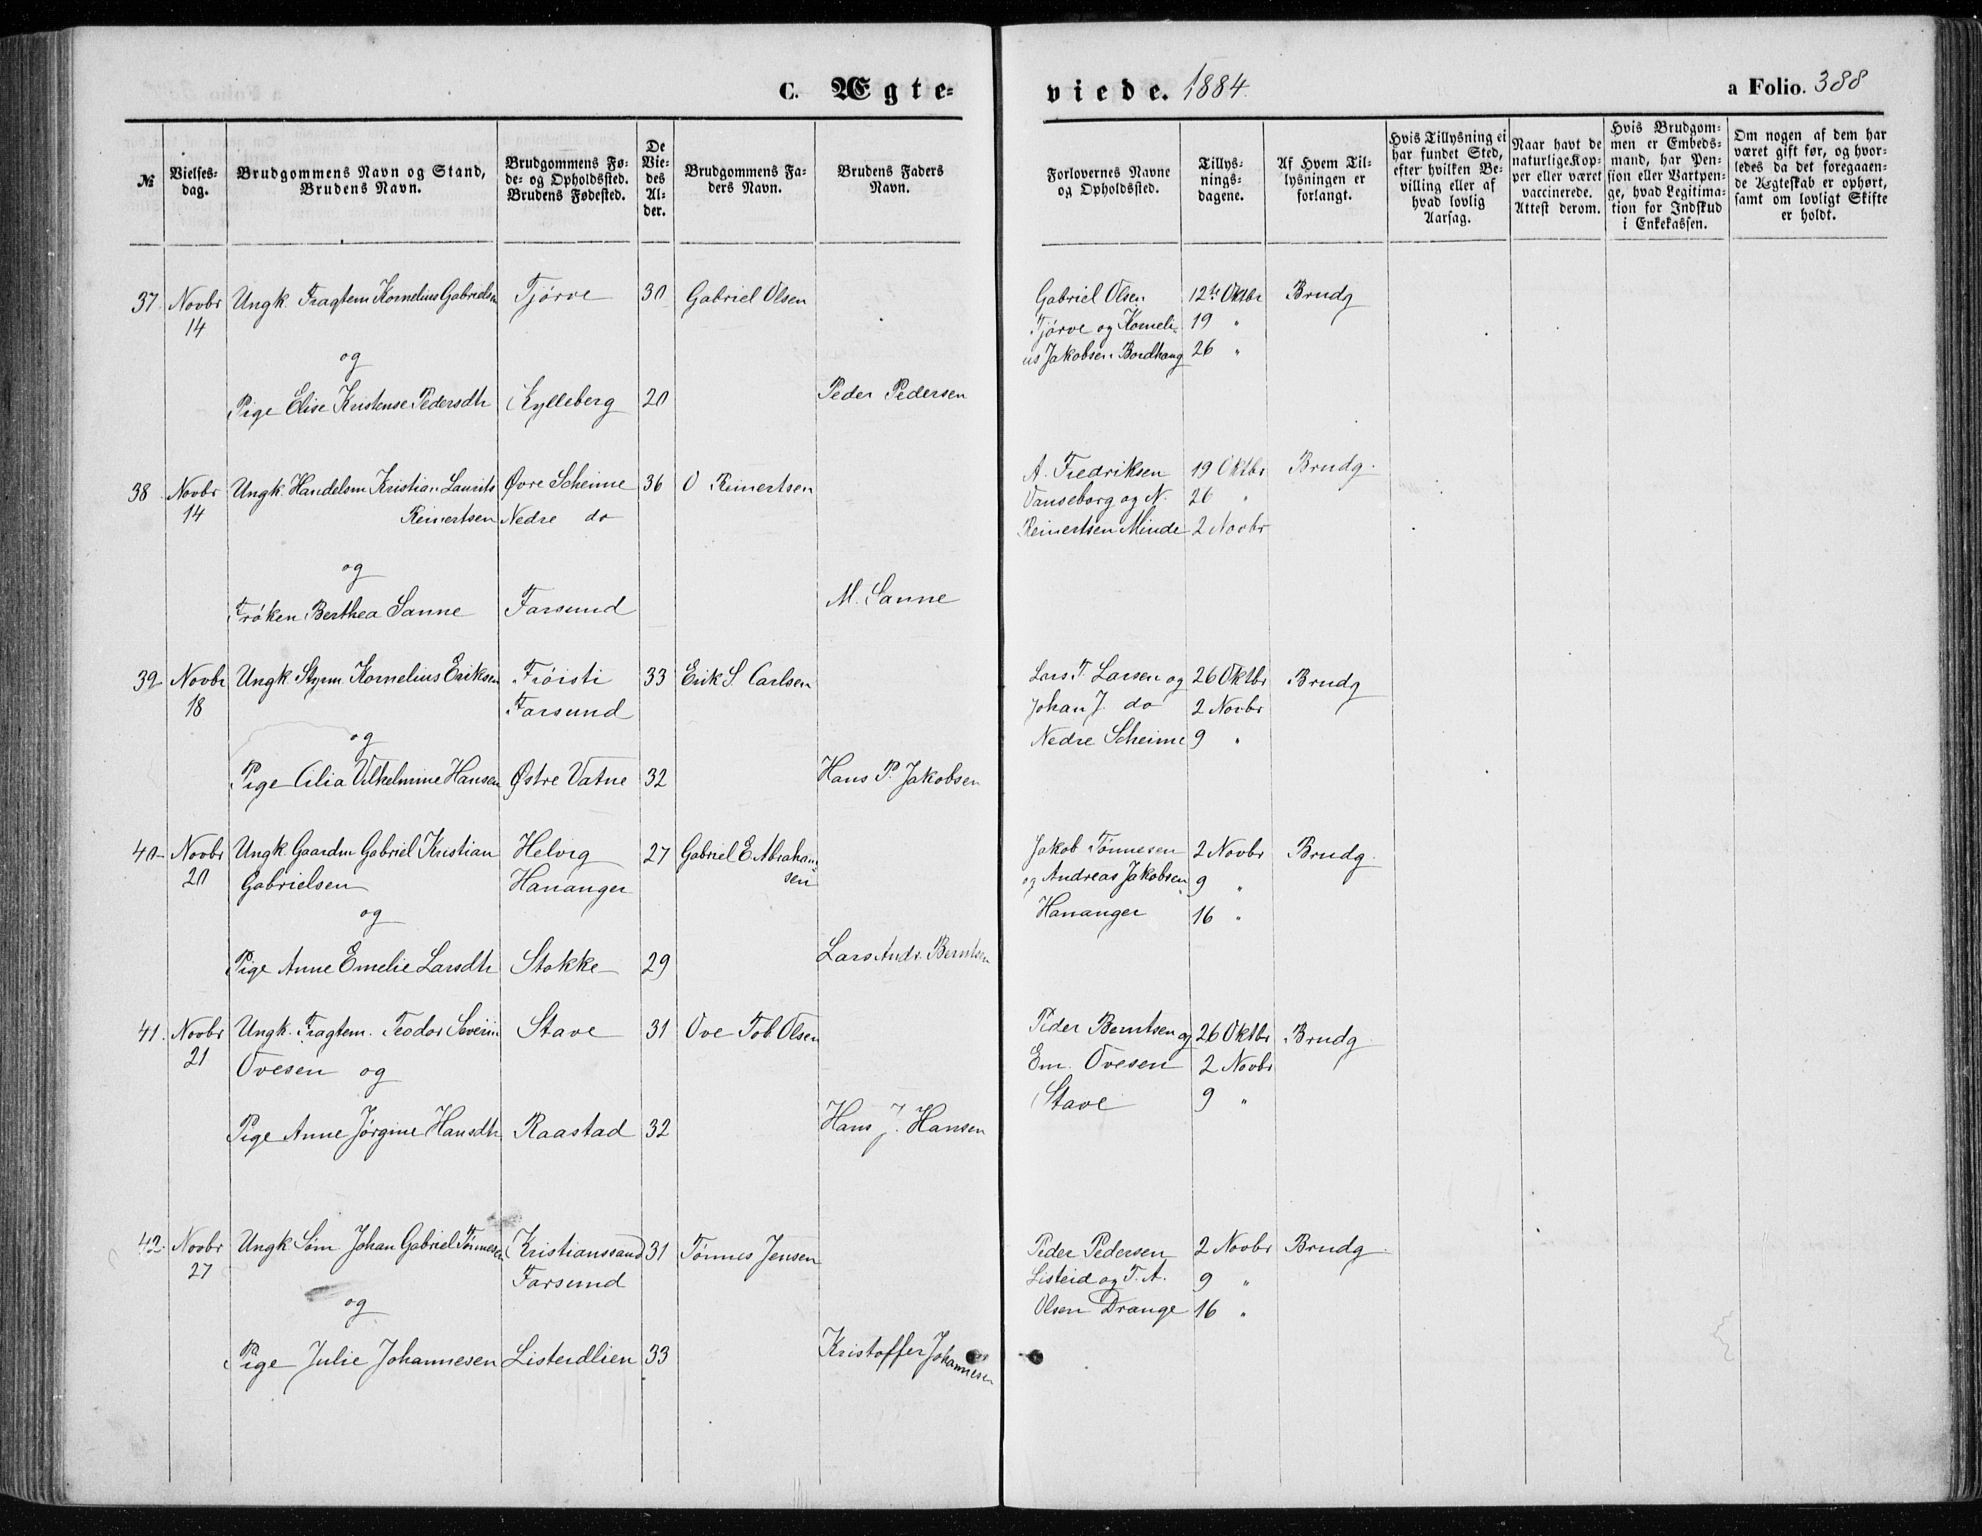 C. Ægte-
viede. 1884.
a Folio. 388
№
Vielses-
dag.
Brudgommens Navn og Stand,
Brudens Navn.
Brudgommens Fø-
de- og Opholdssted.
Brudens Fødested.
De
Vie-
des
Al-
der.
Brudgommens Fa-
ders Navn.
Brudens Faders
Navn.
Forlovernes Navne
og Opholdssted.
Tillys-
nings-
dagene.
Af Hvem Til-
lysningen er
forlangt.
Hvis Tillysning ei
har fundet Sted,
efter hvilken Be-
villing eller af
hvad lovlig
Aarsag.
Naar havt de
naturlige Kop-
per eller været
vaccinerede.
Attest derom.
Hvis Brudgom-
men er Embeds-
mand, har Pen-
sion eller Vartpen-
ge, hvad Legitima-
tion for Indskud
i Enkekassen.
Om nogen af dem har
været gift før, og hvor-
ledes da det foregaaen-
de Ægteskab er ophørt,
samt om lovligt Skifte
er holdt.
37. Novbr Ungk. Fragtem Kornelius Gabrielsen Tjörve 30 Gabriel Olsen Gabriel Olsen 12te Oktbr Brudg
14 Tjörve og Korneli- 19 "
og us Jakobsen Bordhaug 26 "
Pige Elise Kristense Pedersdtr Kylleberg 20 Peder Pedersen
38 Novbr Ungk. Handelsm Kristian Laurits Øvre Scheime 36 O Reinertsen A. Fredriksen 19 Oktbr Brudg.
14 Reinertsen Nedre do Vanseborg og N. 26 "
Reinertsen Minde 2 Novbr
og
Frøken Berthea Sanne Farsund M. Sanne
39 Novbr Ungk. Styrm. Kornelius Eriksen Fröisti 33 Erik S. Carlsen Lars T. Larsen og 26 Oktbr Brudg
18 Farsund Johan J. do 2 Novbr
og Nedre Scheime 9 "
Pige Cilia Vilhelmine Hansen Østre Vatne 32 Hans P. Jakobsen
40 Novbr Ungk. Gaardm Gabriel Kristian Helvig 27 Gabriel E Abraham- Jakob Tönnesen 2 Novbr Brudg.
20 Gabrielsen Hananger sen og Andreas Jakobsen 9 "
og Hananger 16 "
Pige Anne Emelie Larsdtr Stokke 29 Lars Andr. Berntsen
41. Novbr Ungk. Fragtem. Teodor Severin Stave 31 Ove Tob Olsen Peder Berntsen og 26 Oktbr Brudg
21 Ovesen og Em. Ovesen 2 Novbr
Stave 9 "
Pige Anne Jørgine Hansdtr Raastad 32 Hans J. Hansen
42. Novbr Ungk Söm Johan Gabriel Tönnesen Kristianssand 31 Tönnes Jensen Peder Pedersen 2 Novbr Brudg
27 Farsund Listeid og T. A. 9 "
og Olsen Drange 16 "
Pige Julie Johannesen Listeidlien 33 Kristoffer Johannesen